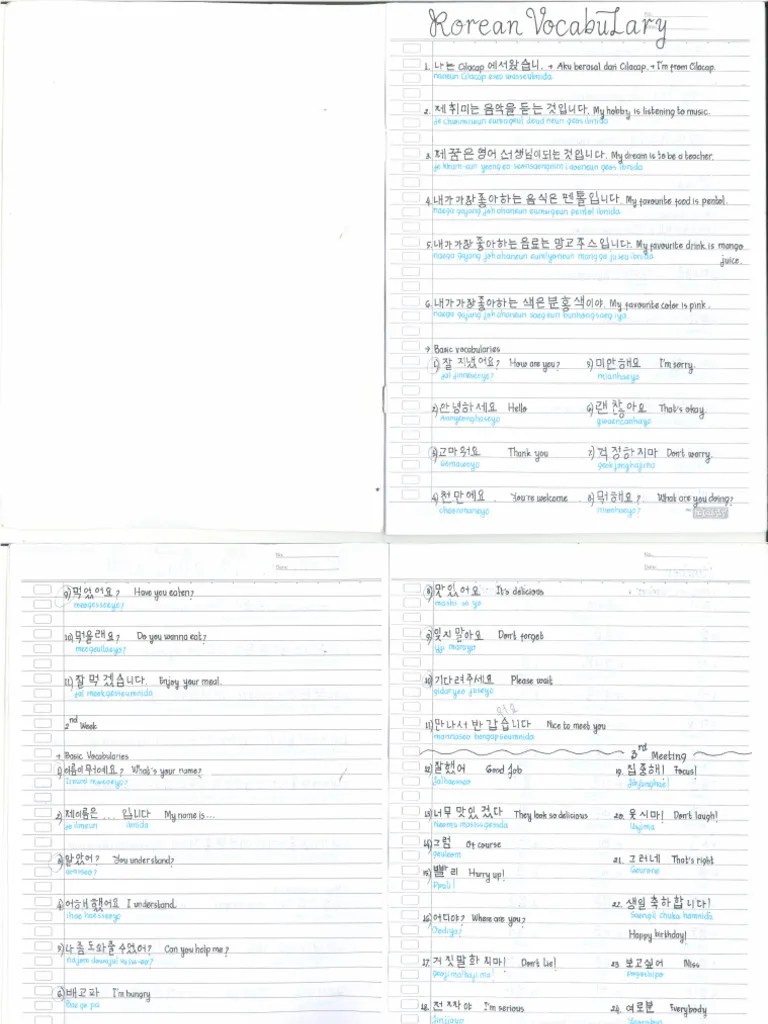 Korean Vocabulary
1. 나는 Cilacap 에서왔습니. → Aku berasal dari Cilacap. → I'm from Cilacap.
naneun Cilacap eseo
2. 제 취미는 음악을 듣는 것입니다. My hobby is listening to music.
3. 제 꿈은 영어 선생님이되는 것입니다. My dream is to be a teacher.
4. 내가 가장 좋아하는 음식은 펜톨입니다. My favourite food is pentol.
5. 내가 가장 좋아하는 음료는 망고 주스입니다. My favourite drink is mango
juice.
6. 내가 가장 좋아하는 색은 분홍색이야. My favourite color is pink.
→ Basic vocabularies
1) 잘 지냈어요? How are you?
jal jinaesseyo?
2) 안녕하세요 Hello
Annyeonghaseyo
3) 고마워요 Thank you
Gomawoyo
4) 천만에요 You're welcome
cheonmaneyo
5) 미안해요 I'm sorry.
mianhaeyo
6) 괜찮아요 That's okay.
7) 걱정하지마 Don't worry.
geokjonghajima
8) 뭐해요? What are you doing?
No.
Date
9) 먹었어요? Have you eaten?
meogeosseoyo?
10) 먹을래요? Do you wanna eat?
meogeullaeyo?
11) 잘 먹겠습니다. Enjoy your meal.
2nd Week
→ Basic Vocabularies
1) 이름이 뭐에요? What's your name?
2) 제이름은 ... 입니다 My name is...
je ileumeun imnida
3) 알았어? You understand?
4) 어해했어요 I understand.
ihae haesseoyo
5) 나 좀 도와줄 수있어? Can you help me?
6) 배고파 I'm hungry
Bae go pa
No.
Date
8) 맛있어요 It's delicious
mashi sso yo
9) 잊지 말아요 Don't forget
ijji marayo
10) 기다려주세요 Please wait
gidaryeo juseyo
11) 만나서 반갑습니다 Nice to meet you
3rd Meeting
12) 잘했어 Good Job
13) 너무 맛있겠다 They look so delicious
14) 그럼 Of course
geuleom
15) 빨리 Hurry up!
Ppali!
16) 어디야? Where are you?
Oediya?
17) 거짓말하지마! Don't Lie!
18. 전지하야 I'm serious
19. 집중해! Focus!
20. 웃지마! Don't laugh!
Usjima
21. 그러네 That's right
Geurone
22. 생일 축하합니다!
Saengil chuka hamnida
Happy birthday!
23. 보고싶어 Miss
24. 여로분 Everybody